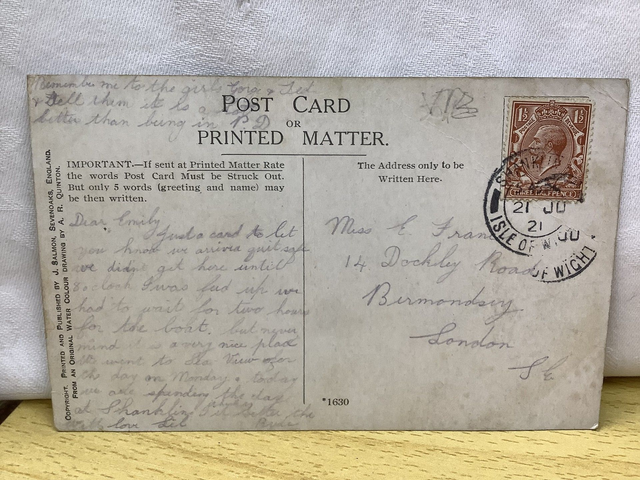 Remember me to the girls
& tell them it is a
better than being in P D
POST CARD
OR
PRINTED MATTER.
IMPORTANT.—If sent at Printed Matter Rate
the words Post Card Must be Struck Out.
But only 5 words (greeting and name) may
be then written.
The Address only to be
Written Here.
COPYRIGHT. PRINTED AND PUBLISHED BY J. SALMON, SEVENOAKS, ENGLAND.
FROM AN ORIGINAL WATER COLOUR DRAWING BY A. R. QUINTON.
Dear Emily
Just a card to let
you know we arrived quite safe
we didn't get here until
I was fed up we
had to wait for two hours
for the boat. but never
mind it a very nice place
we went to Sea View for
the day on Monday & today
we are spending the day
at Shanklin
with love
Miss E.
14 Dockley Road
Bermondsey
London
S E
1½ 1½
THREE HALFPENCE
21 JU
21
ISLE OF WIGHT
*1630